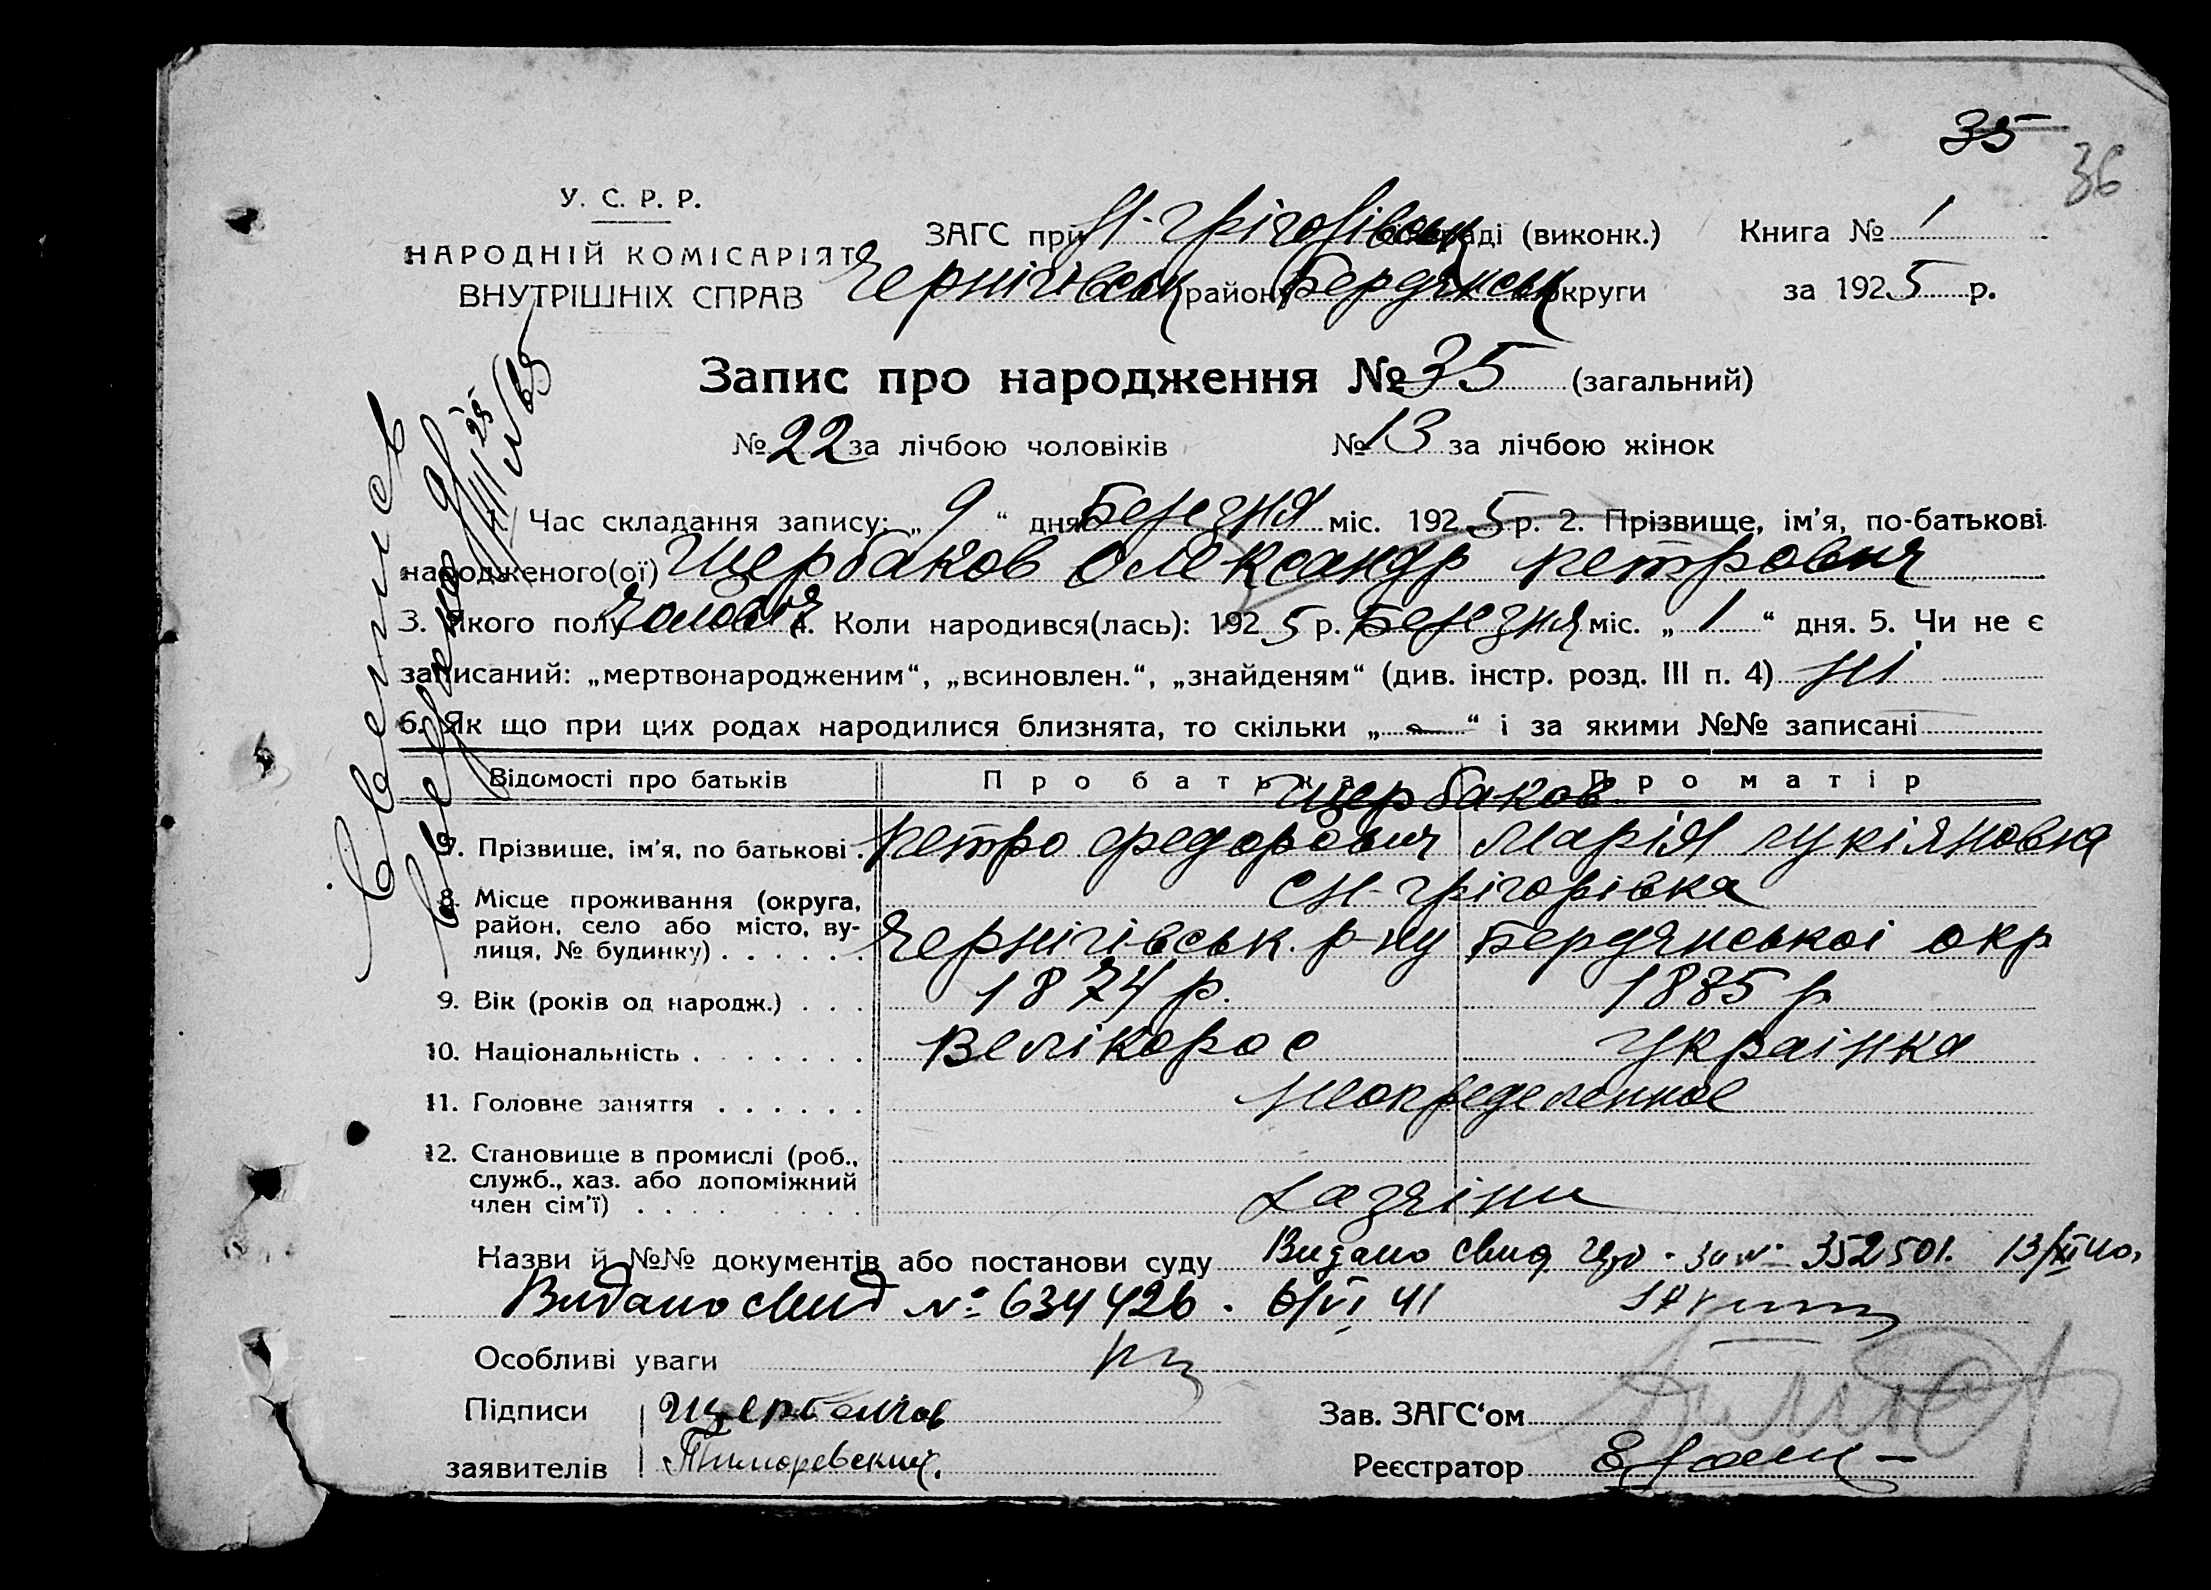 35
36
У. С. Р. Р.
НАРОДНІЙ КОМІСАРІЯТ
ВНУТРІШНІХ СПРАВ
ЗАГС при Н-Грігорівськ раді (виконк.) Книга № 1
Чернігівськ району Бердянськ округи за 1925 р.
Запис про народження № 35 (загальний)
№ 22 за лічбою чоловіків № 13 за лічбою жінок
Час складання запису: „ 9 “ дня Березня міс. 1925 р. 2. Прізвище, ім’я, по-батькові
народженого(ої) Щербаков Олександр Петрович
3. Якого полу Чоловіч 4. Коли народився(лась): 1925 р. Березня міс. „ 1 “ дня. 5. Чи не є
записаний: „мертвонародженим“, „всиновлен.“, „знайденям“ (див. інстр. розд. III п. 4) Ні
6. Як що при цих родах народилися близнята, то скільки „ — “ і за якими №№ записані
Відомості про батьків Про батька Про матір
Щербаков
7. Прізвище, ім’я, по батькові Петро Федорович Марія Лукіяновна
8. Місце проживання (округа, район, село або місто, вулиця, № будинку) с Н-Грігорівка
Чернігівськ. р-ну Бердянськоі окр
9. Вік (років од народж.) 1874 р. 1885 р
10. Національність Велікорос Українка
11. Головне заняття Неопределенное
12. Становище в промислі (роб.,
служб., хаз. або допоміжний
член сім’ї) Хазяіни
Назви й №№ документів або постанови суду Видано свид за № 352501. 13/XII 40
Видано свид № 634426. 6/VI 41
Особливі уваги
Підписи Щербаков Зав. ЗАГС‘ом
заявителів Реєстратор